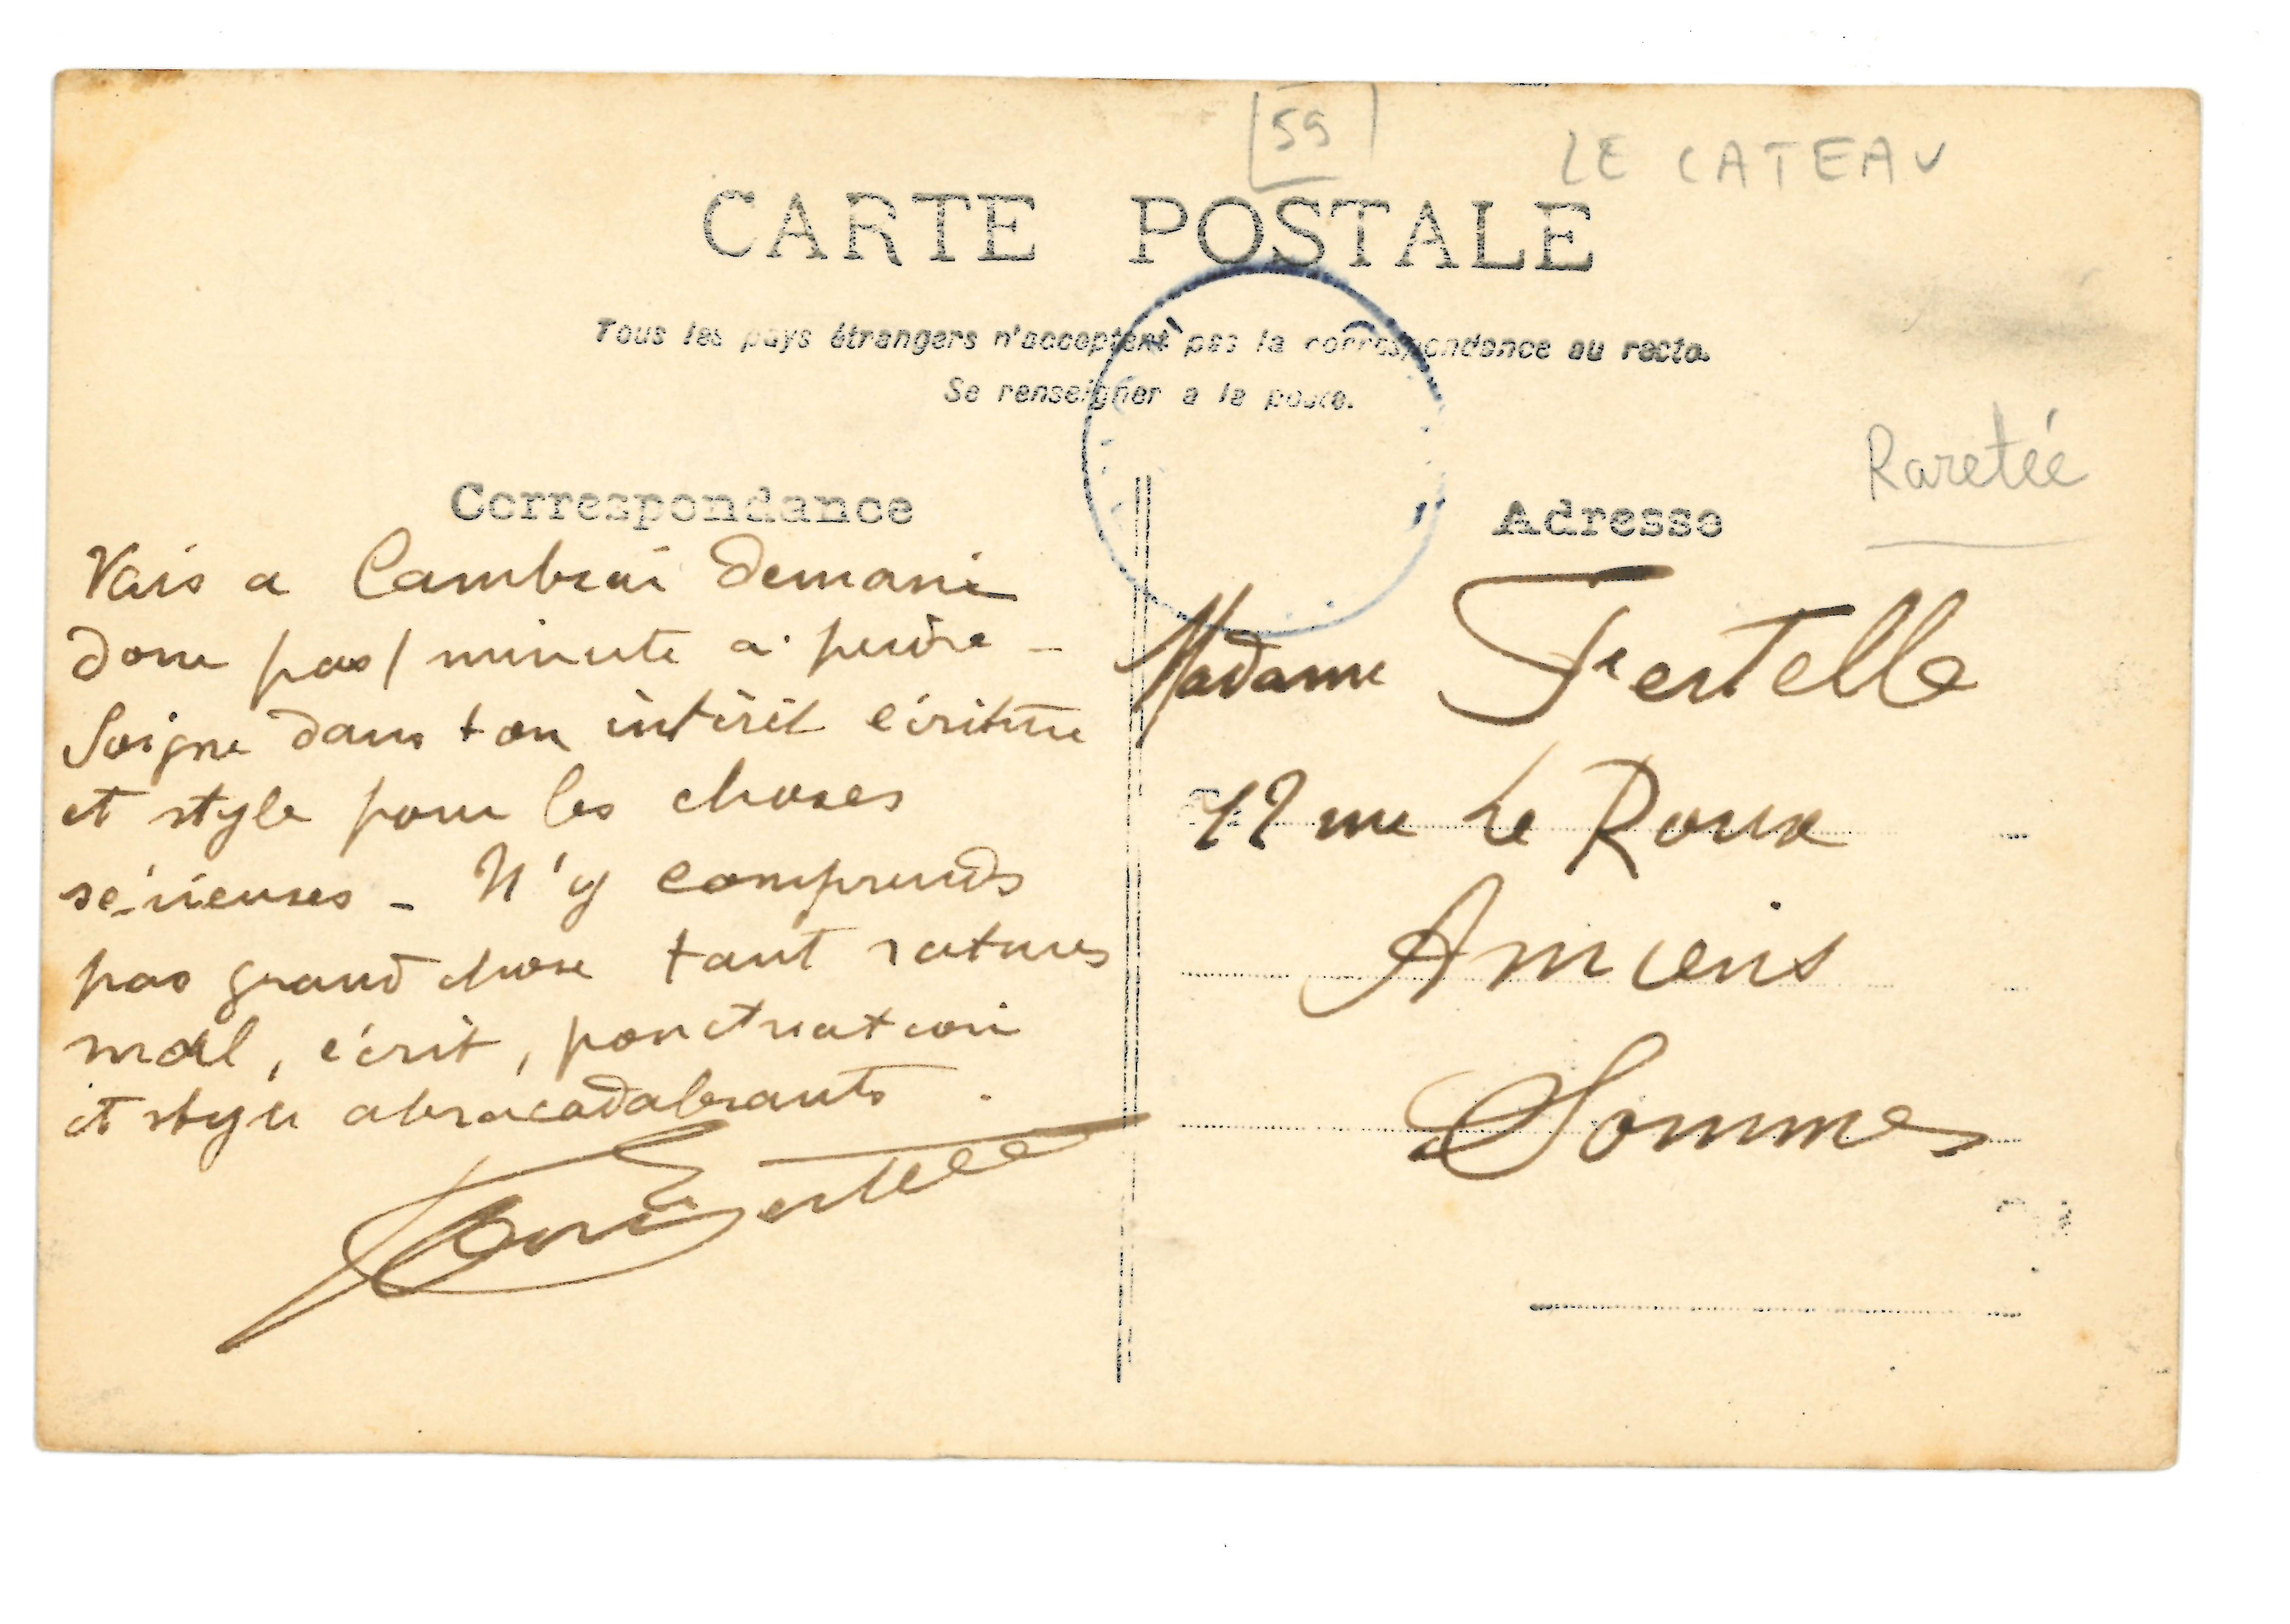 [59] LE CATEAU
CARTE POSTALE
Tous les pays étrangers n'acceptent pas la correspondance au recto.
Se renseigner a la poste.
Raretée
Correspondance
Vais a Cambrai demain
donc pas 1 minute a perdre -
Soigne dans ton intérêt écriture
et style pour les choses
sérieuses - N'y comprends
pas grand chose tant ratures
mal, écrit, ponctuation
et style abracadabrants.
Adresse
Madame Fertelle
12 rue Le Roux
Amiens
Somme